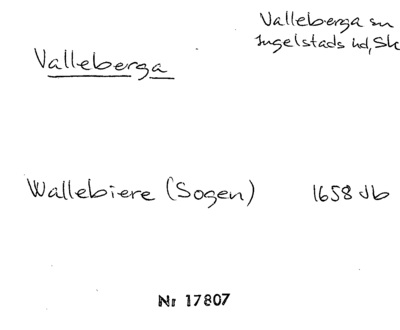 Valleberga
Valleberga sn
Ingelstads hd, Sk
Wallebiere (Sogen) 1658 Jb
Nr 17807